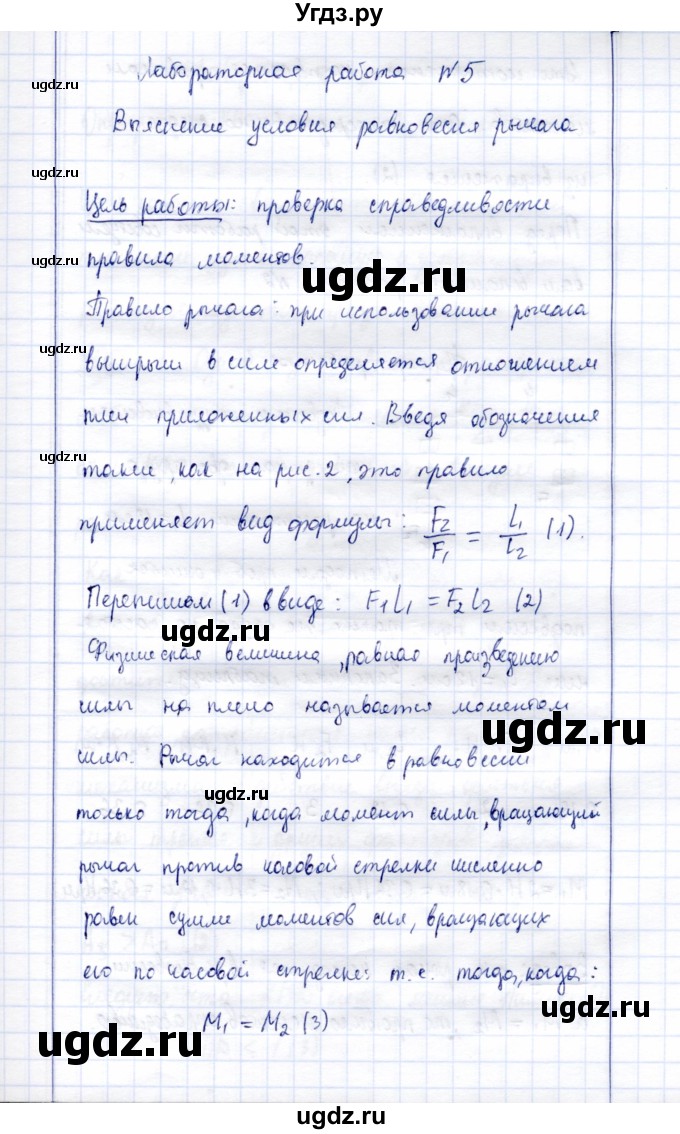 Угдз.ру
Лабораторная работа №5
Выяснение условия равновесия рычага
Цель работы: проверка справедливости
правила моментов.
Правило рычага: при использовании рычага
выигрыш в силе определяется отношением
плеч приложенных сил. Введя обозначения
такие, как на рис. 2, это правило
применяет вид формулы: F₂/F₁ = l₁/l₂ (1).
Перепишем (1) в виде: F₁l₁ = F₂l₂ (2)
Физическая величина, равная произведению
силы на плечо называется моментом
силы. Рычаг находится в равновесии
только тогда, когда момент силы, вращающий
рычаг против часовой стрелки численно
равен сумме моментов сил, вращающих
его по часовой стрелке: т.е. тогда, когда:
M₁ = M₂ (3)
ugdz.ru
ugdz.ru
ugdz.ru
ugdz.ru
ugdz.ru
ugdz.ru
ugdz.ru
ugdz.ru
ugdz.ru
ugdz.ru
ugdz.ru
ugdz.ru